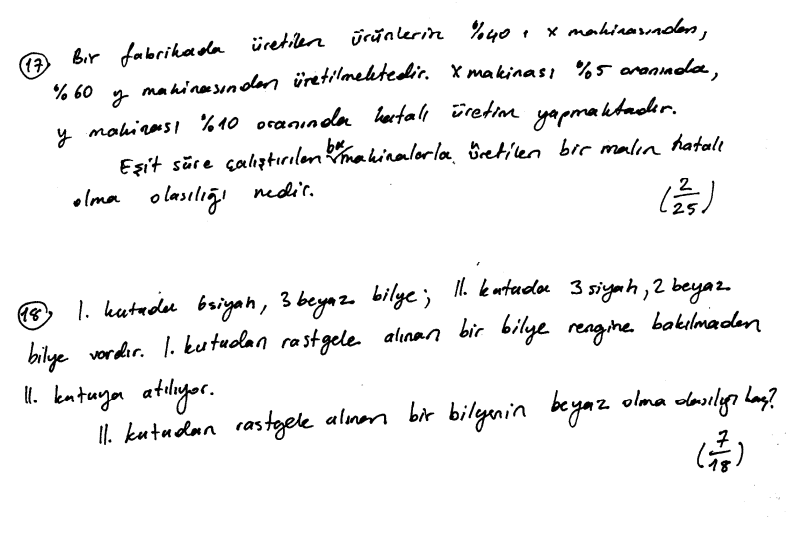 17) Bir fabrikada üretilen ürünlerin %40 ı x makinasından,
%60 y makinasından üretilmektedir. x makinası %5 oranında,
y makinası %10 oranında hatalı üretim yapmaktadır.
Eşit süre çalıştırılan bu makinalarla üretilen bir malın hatalı
olma olasılığı nedir.
(2/25)
18) I. kutuda 6 siyah, 3 beyaz bilye; II. kutuda 3 siyah, 2 beyaz
bilye vardır. I. kutudan rastgele alınan bir bilye rengine bakılmadan
II. kutuya atılıyor.
II. kutudan rastgele alınan bir bilyenin beyaz olma olasılığı kaç?
(7/18)